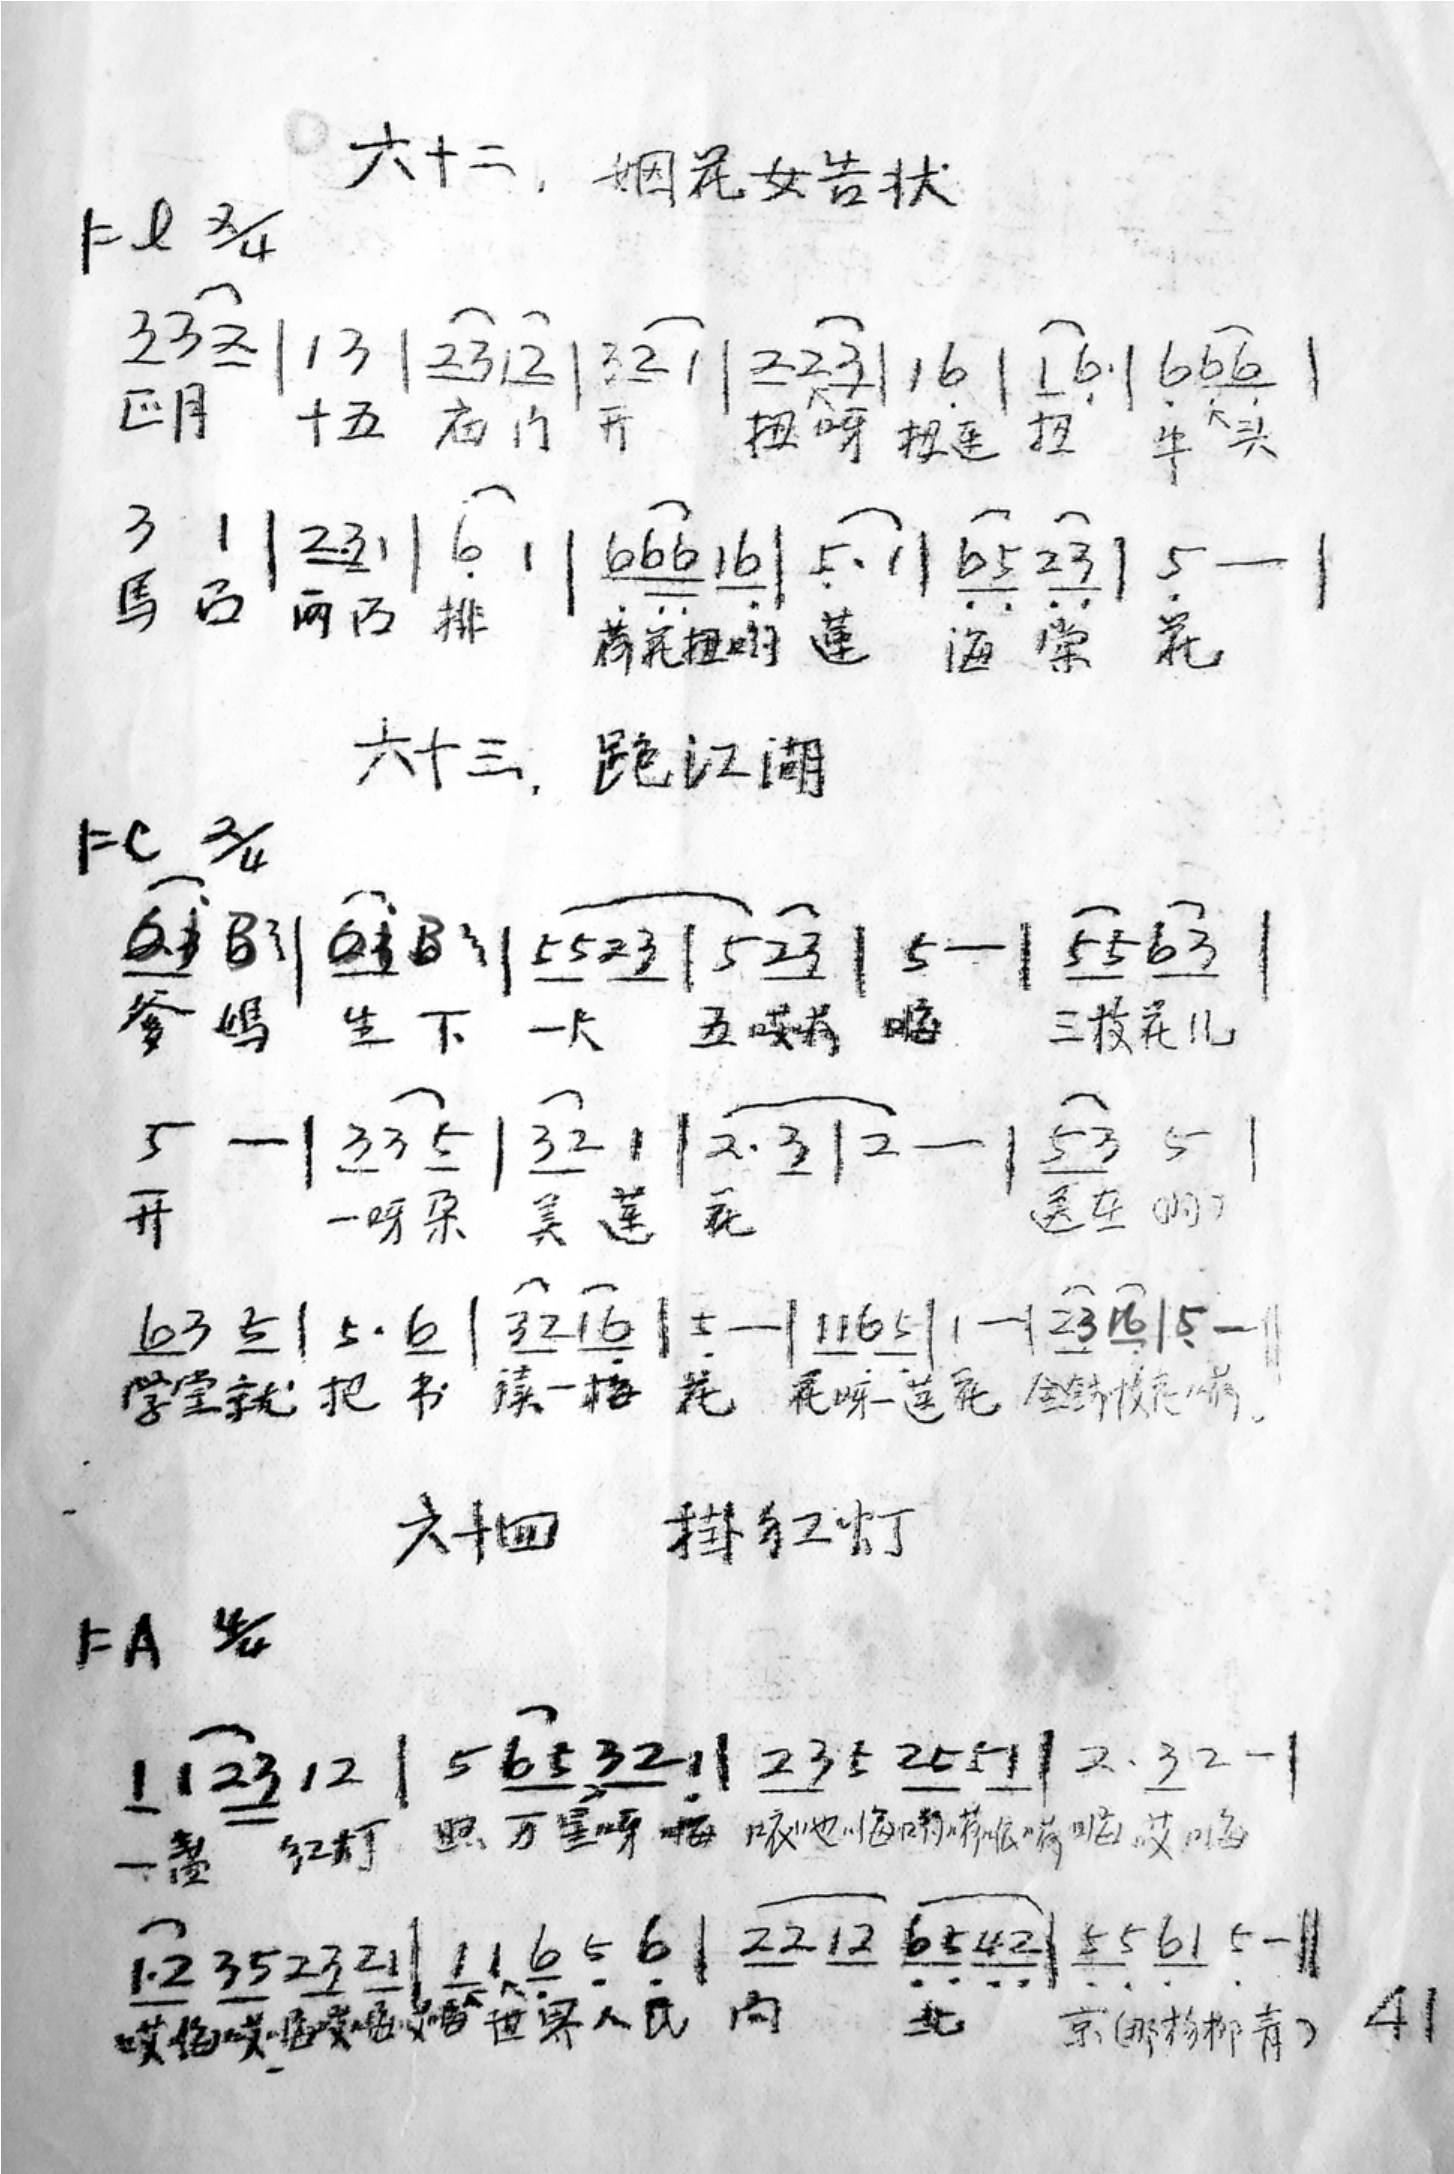 六十二，姻花女告状
1=l 2/4
332|13|2312|321|223|16|16·|666|
正月 十五 衙门 开 扭呀 扭连 扭 牛头
3 1|2·31|6 1|66616|5·1|6523|5—|
馬 西 兩西 排 荷花扭 蓮 海棠 花
六十三，跑江湖
1=C 2/4
|5523|523|5—|5563|
爹 媽 生下 一 五哎 嗨 三枝花儿
5 —|335|32 1|2·3|2—|53 5|
开 一呀朵 美莲 花 送在
63 5|5·6|3216|5—|1165|1—|2316|5—‖
学堂就 把书 读一 花 花呀一莲花
六十四 掛红灯
1=A 4/4
112312|565321|2352551|2·32—|
一盏 红灯 照万 呀 嗨 哎嗨
1·2352321|11656|22126542|55615—‖
哎嗨哎 世界人民 向 北 京(那杨柳青)
41